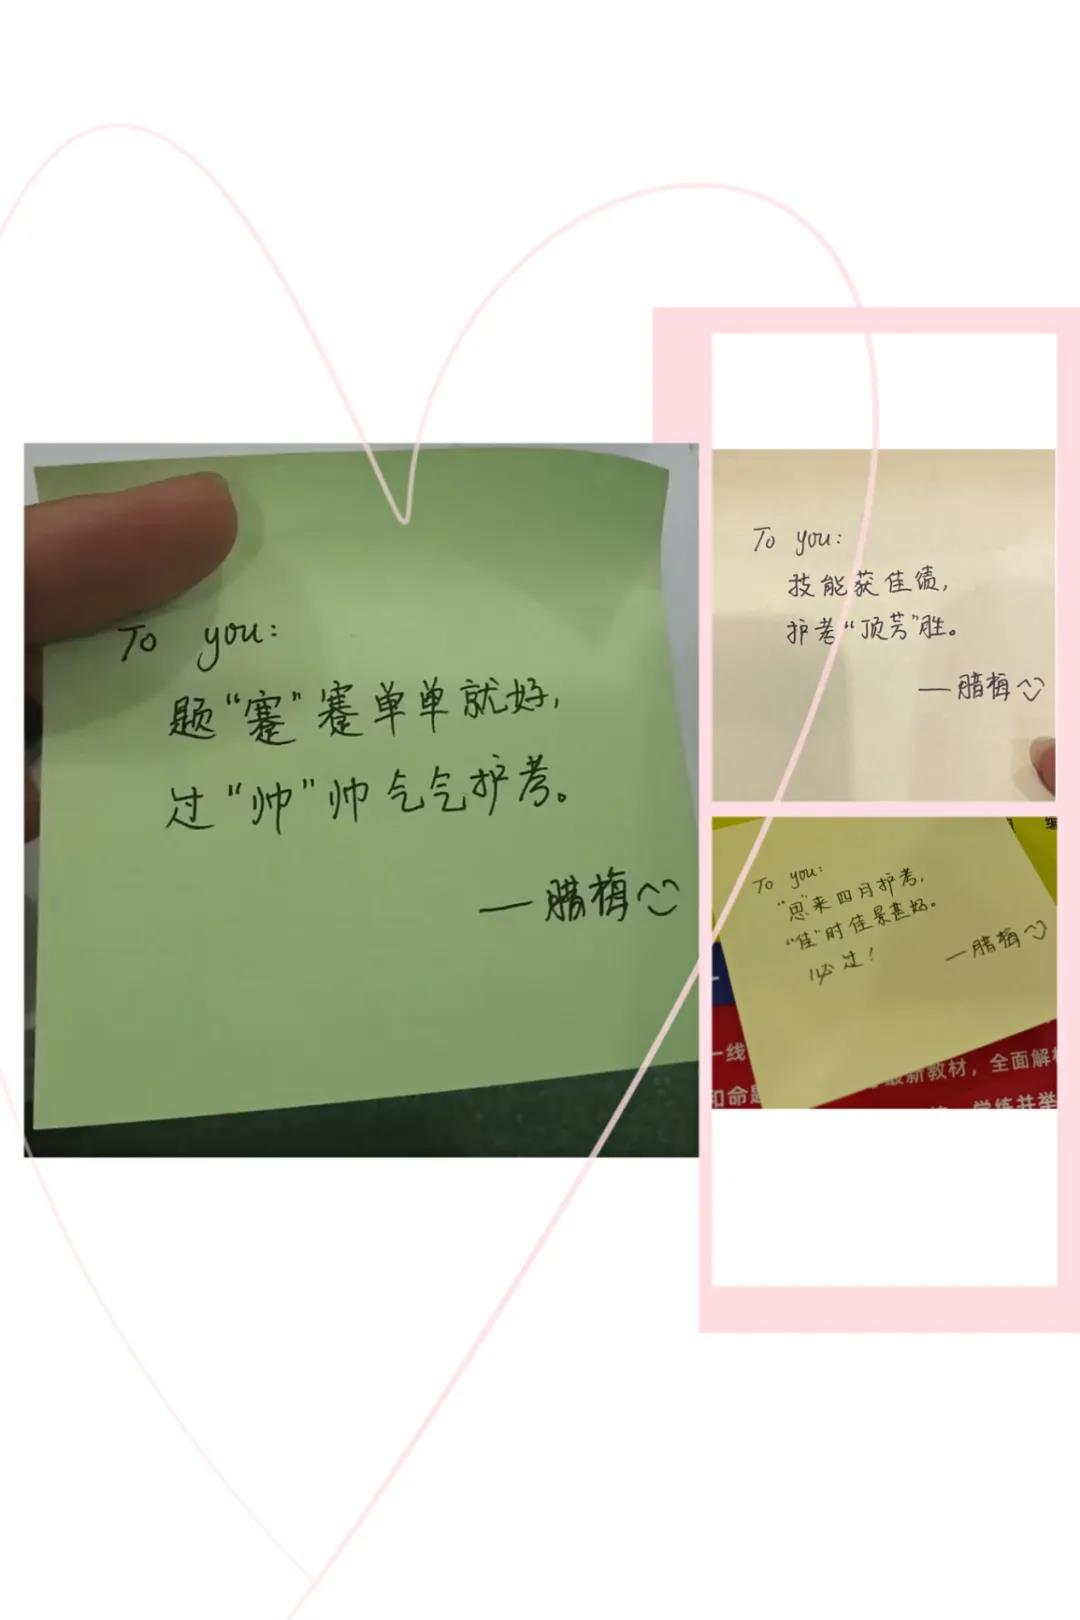 To you:
题“蹇”蹇单单就好,
过“帅”帅气气护考。
—腊梅
To you:
技能获佳绩,
护考“顶芳”胜。
—腊梅
To you:
“思”来四月护考,
“佳”时佳景甚好。
必过!
—腊梅
一线
新教材，全面解
和命
学练并举